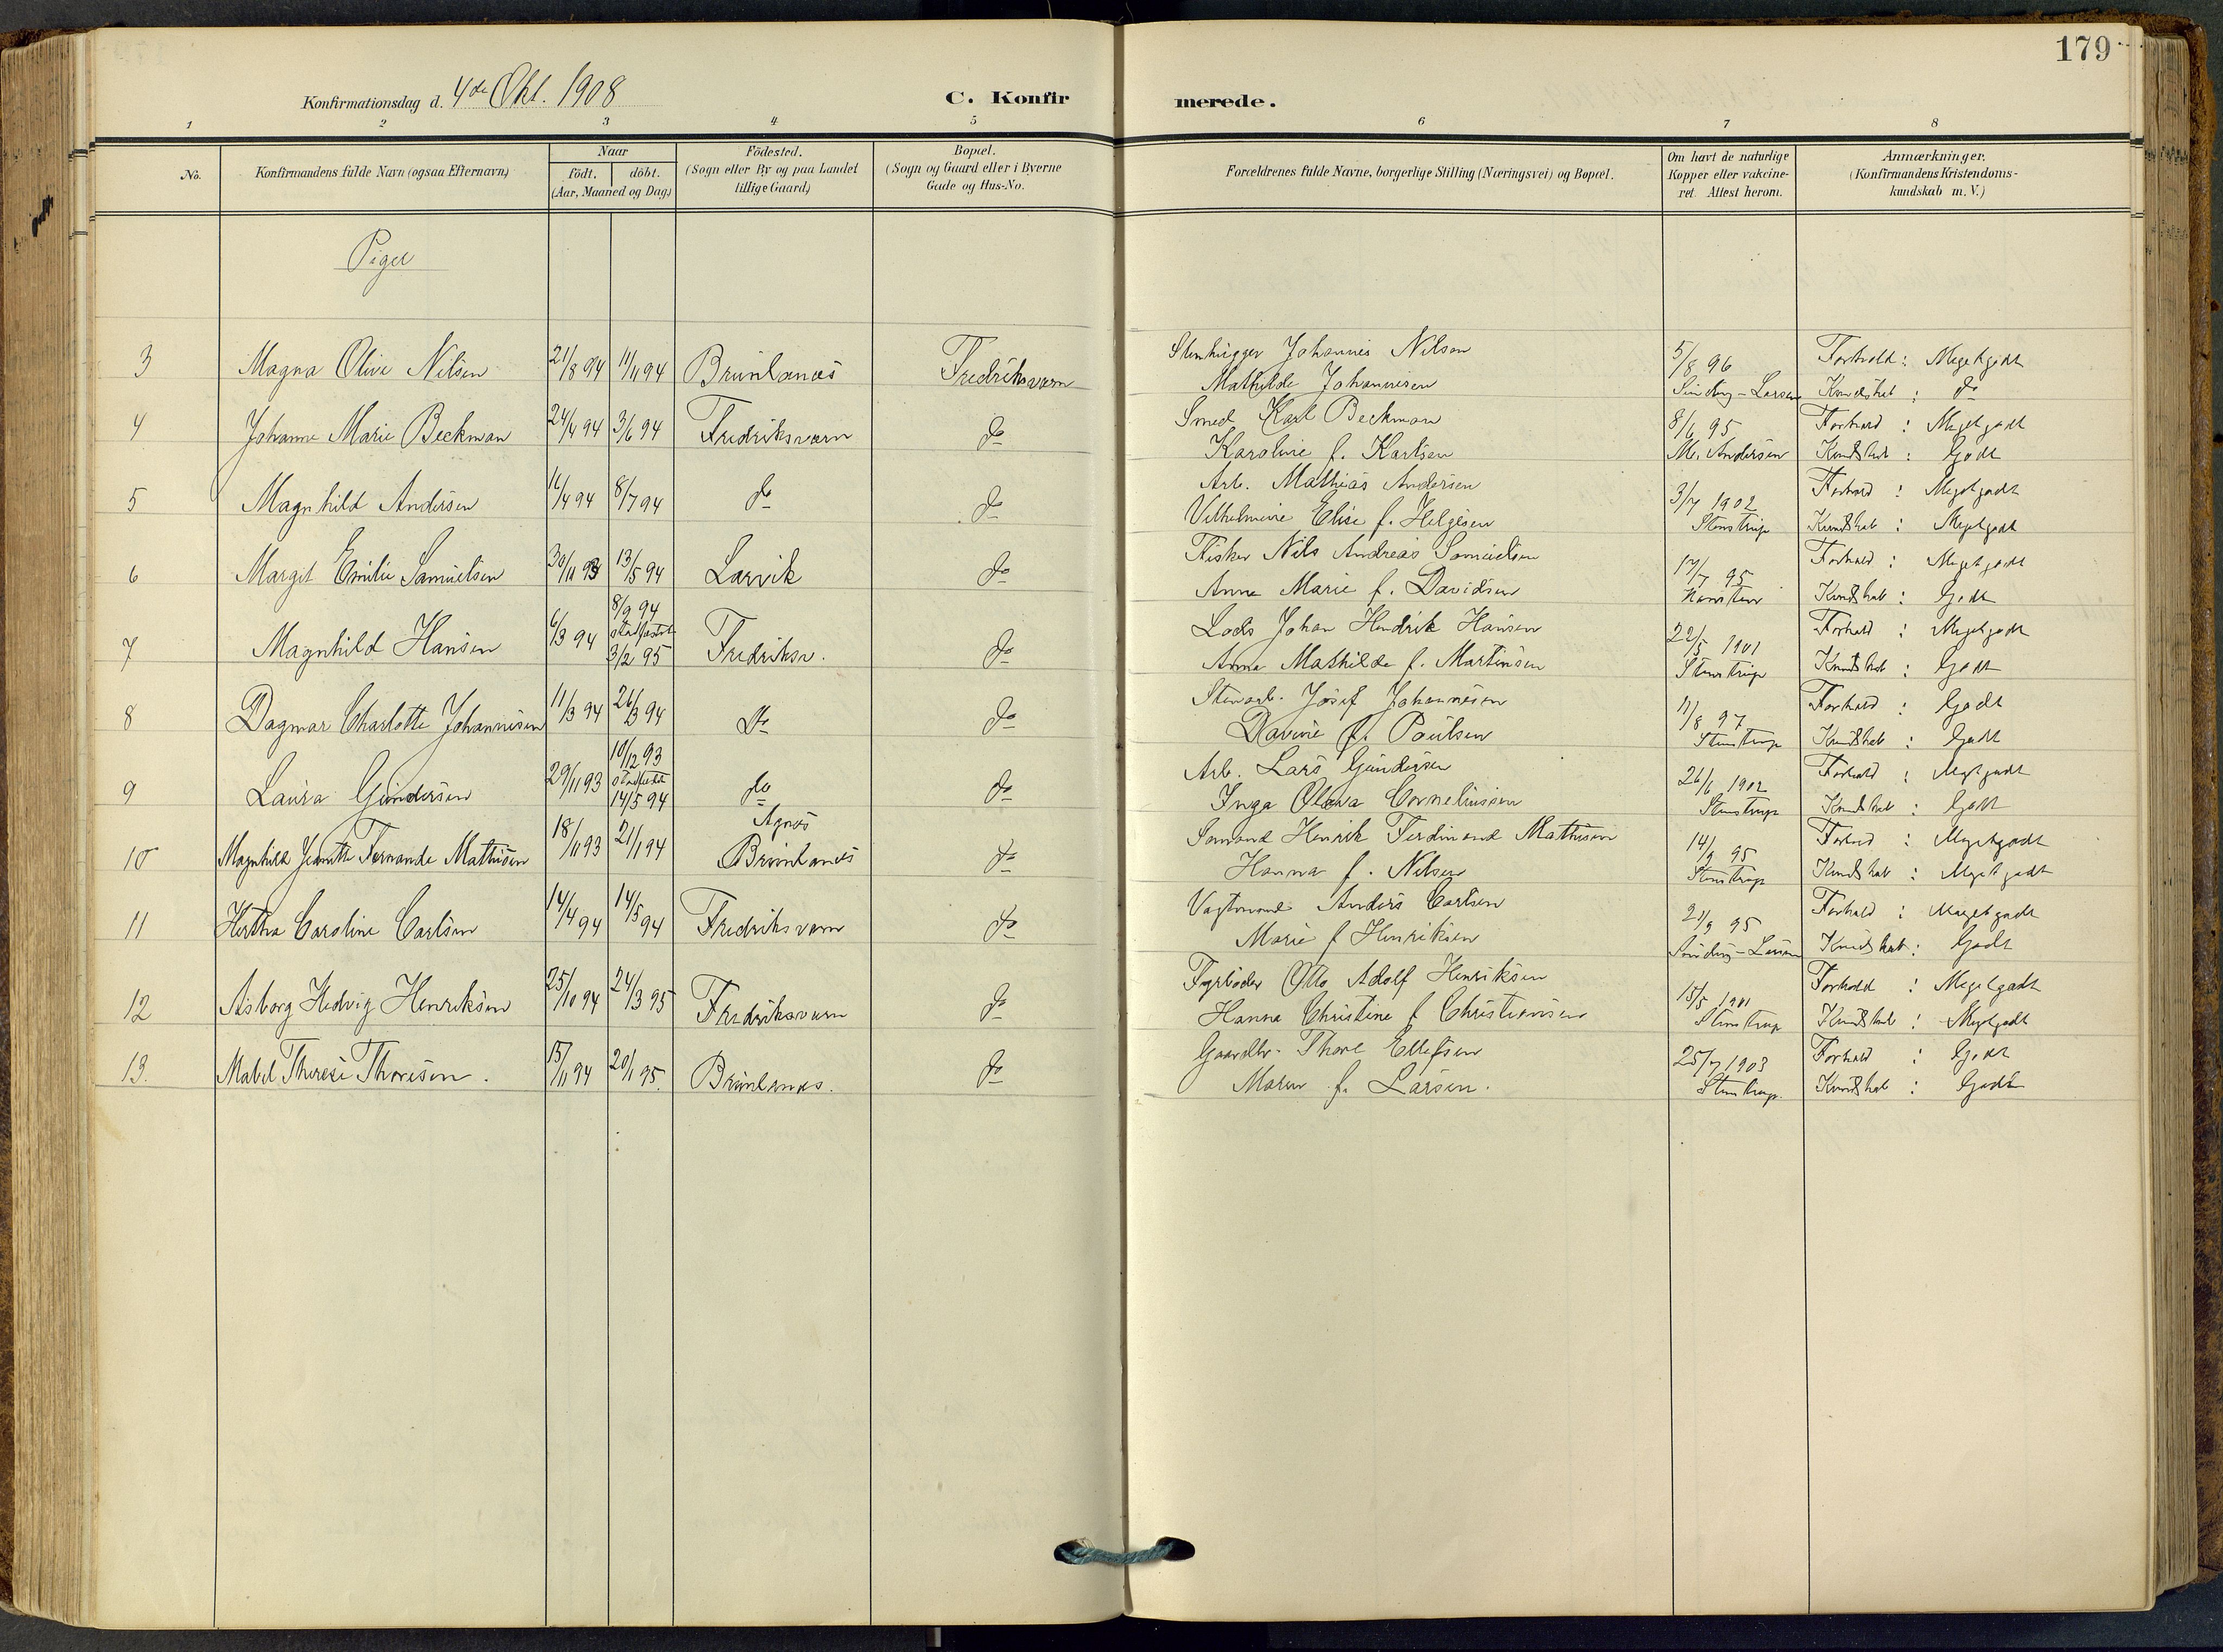 179
Konfirmationsdag d. 4de Okt. 1908
C. Konfirmerede.
1 2 3 4 5 6 7 8
No.
Konfirmandens fulde Navn (ogsaa Efternavn)
Naar
födt. döbt.
(Aar, Maaned og Dag)
Födested.
(Sogn eller By og paa Landet
tillige Gaard)
Bopæl.
(Sogn og Gaard eller i Byerne
Gade og Hus-No.
Forældrenes fulde Navne, borgerlige Stilling (Næringsvei) og Bopæl.
Om havt de naturlige
Kopper eller vakcine-
ret. Attest herom.
Anmærkninger.
(Konfirmandens Kristendoms-
kundskab m. V.)
Piger
3 Magna Olive Nilsen 21/8 94 11/11 94 Brunlanes Fredriksværn
Stenhugger Johannes Nilsen
Mathilde Johannesen
5/8 96
Sinding-Larsen
Forhold : Megetgodt
Kundskab : do
4 Johanne Marie Beckman 24/4 94 3/6 94 Fredriksværn do
Smed Karl Beckman
Karoline f. Karlsen
8/6 95
M. Andersen
Forhold : Megetgodt
Kundskab : Godt
5 Magnhild Andersen 16/4 94 8/7 94 do do
Arb. Mathias Andersen
Vilhelmine Elise f. Helgesen
3/7 1902
Stenstrup
Forhold : Megetgodt
Kundskab : Megetgodt
6 Margit Emilie Samuelsen 30/11 93 13/5 94 Larvik do
Fisker Nils Andreas Samuelsen
Anna Marie f. Davidsen
17/7 95
Forhold : Megetgodt
Kundskab : Godt
7 Magnhild Hansen 6/3 94 8/9 94
stadfæstet
3/2 95 Fredriksv. do
Lods Johan Hendrik Hansen
Anna Mathilde f. Martinsen
22/5 1901
Stenstrup
Forhold : Megetgodt
Kundskab : Godt
8 Dagmar Charlotte Johannesen 11/3 94 26/3 94 do do
Stenarb. Josef Johannesen
Davine f. Paulsen
11/8 97
Stenstrup
Forhold : Godt
Kundskab : Godt
9 Laura Gundersen 29/11 93 10/12 93
stadfæstet
14/5 94 do do
Arb. Lars Gundersen
Inga Olava Corneliussen
26/6 1902
Stenstrup
Forhold : Megetgodt
Kundskab : Godt
10 Magnhild Jeanette Fernanda Mathisen 18/11 93 21/1 94 Agnes
Brunlanes do
Sømand Henrik Ferdinand Mathisen
Hanna f. Nilsen
14/9 95
Stenstrup
Forhold : Megetgodt
Kundskab : Megetgodt
11 Hertha Caroline Carlsen 14/4 94 14/5 94 Fredriksværn do
Vagtmand Anders Carlsen
Marie f Henriksen
21/9 95
Sinding-Larsen
Forhold : Megetgodt
Kundskab : Godt
12 Asborg Hedvig Henriksen 25/10 94 24/3 95 Fredriksværn do
Fyrbøder Otto Adolf Henriksen
Hanna Christine f Christiansen
15/5 1901
Stenstrup
Forhold : Megetgodt
Kundskab : Megetgodt
13. Mabel Therese Thoresen. 15/11 94 20/1 95. Brunlanes. do
Gaardbr. Thore Ellefsen
Maren f. Larsen.
25/7 1903
Stenstrup.
Forhold : Godt
Kundskab : Godt